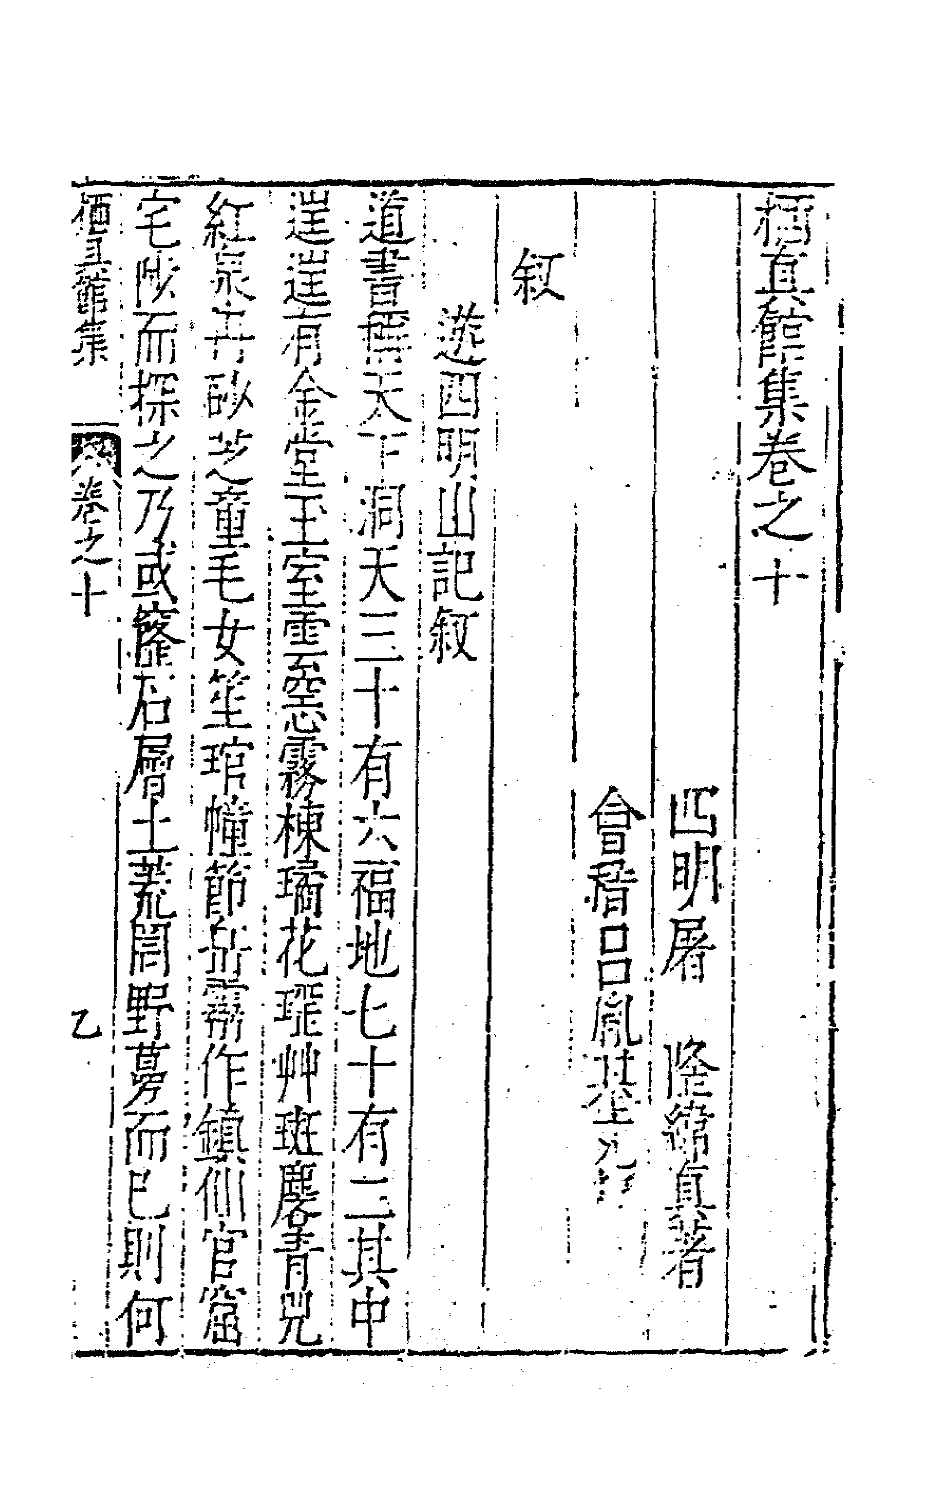 栖真館集卷之十
四明屠隆緯真著
會稽呂胤基
敘
遊四明山記敘
道書謂天下洞天三十有六福地七十有二其中
逞逞有金堂玉室雲窓霧棟璚花瑶艸斑麐青兕
紅泉丹砂芝童毛女笙琯幢節岳霛作鎮仙官窟
宅陟而探之乃或窿石層土荒閭野蔓而已則何
栖真館集
卷之十
乙